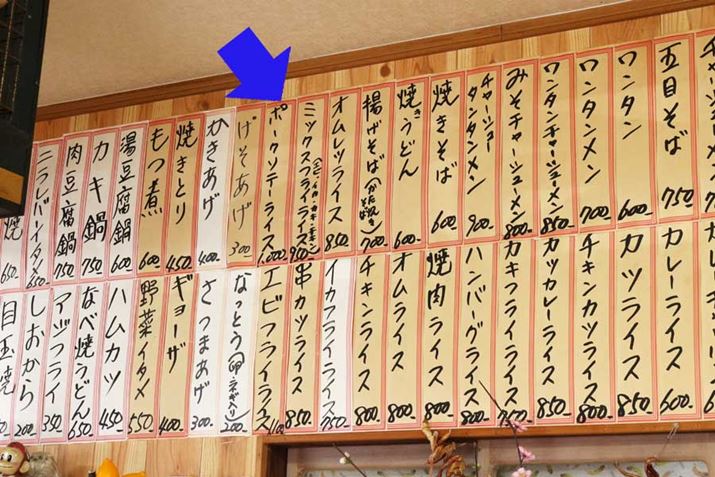 チャーシューメン
五目そば 750
ワンタン 600
ワンタンメン 700
ワンタンチャーシューメン 850
みそチャーシューメン 800
チャーシュータンタンメン 900
焼きそば 600
焼きうどん 600
揚げそば(かた焼き) 700
オムレツライス 850
ミックスフライライス(エビ・イカ・カキ・チキン) 950
ポークソテーライス 1,000
げそあげ 300
かきあげ 400
焼きとり 450
もつ煮 600
湯豆腐鍋 600
カキ鍋 750
肉豆腐鍋 750
ニラレバーイタメ 650
焼 650
カレーライス 600
カツライス 850
チキンカツライス 800
カツカレーライス 850
カキフライライス 750
ハンバーグライス 900
焼肉ライス 800
オムライス 800
チキンライス 800
イカフライライス 750
串カツライス 850
エビフライライス 1100
なっとう(卵・ネギ入り) 200
さつまあげ 300
ギョーザ 400
野菜イタメ 550
ハムカツ 450
なべ焼うどん 650
アジフライ 350
しおから 200
目玉焼